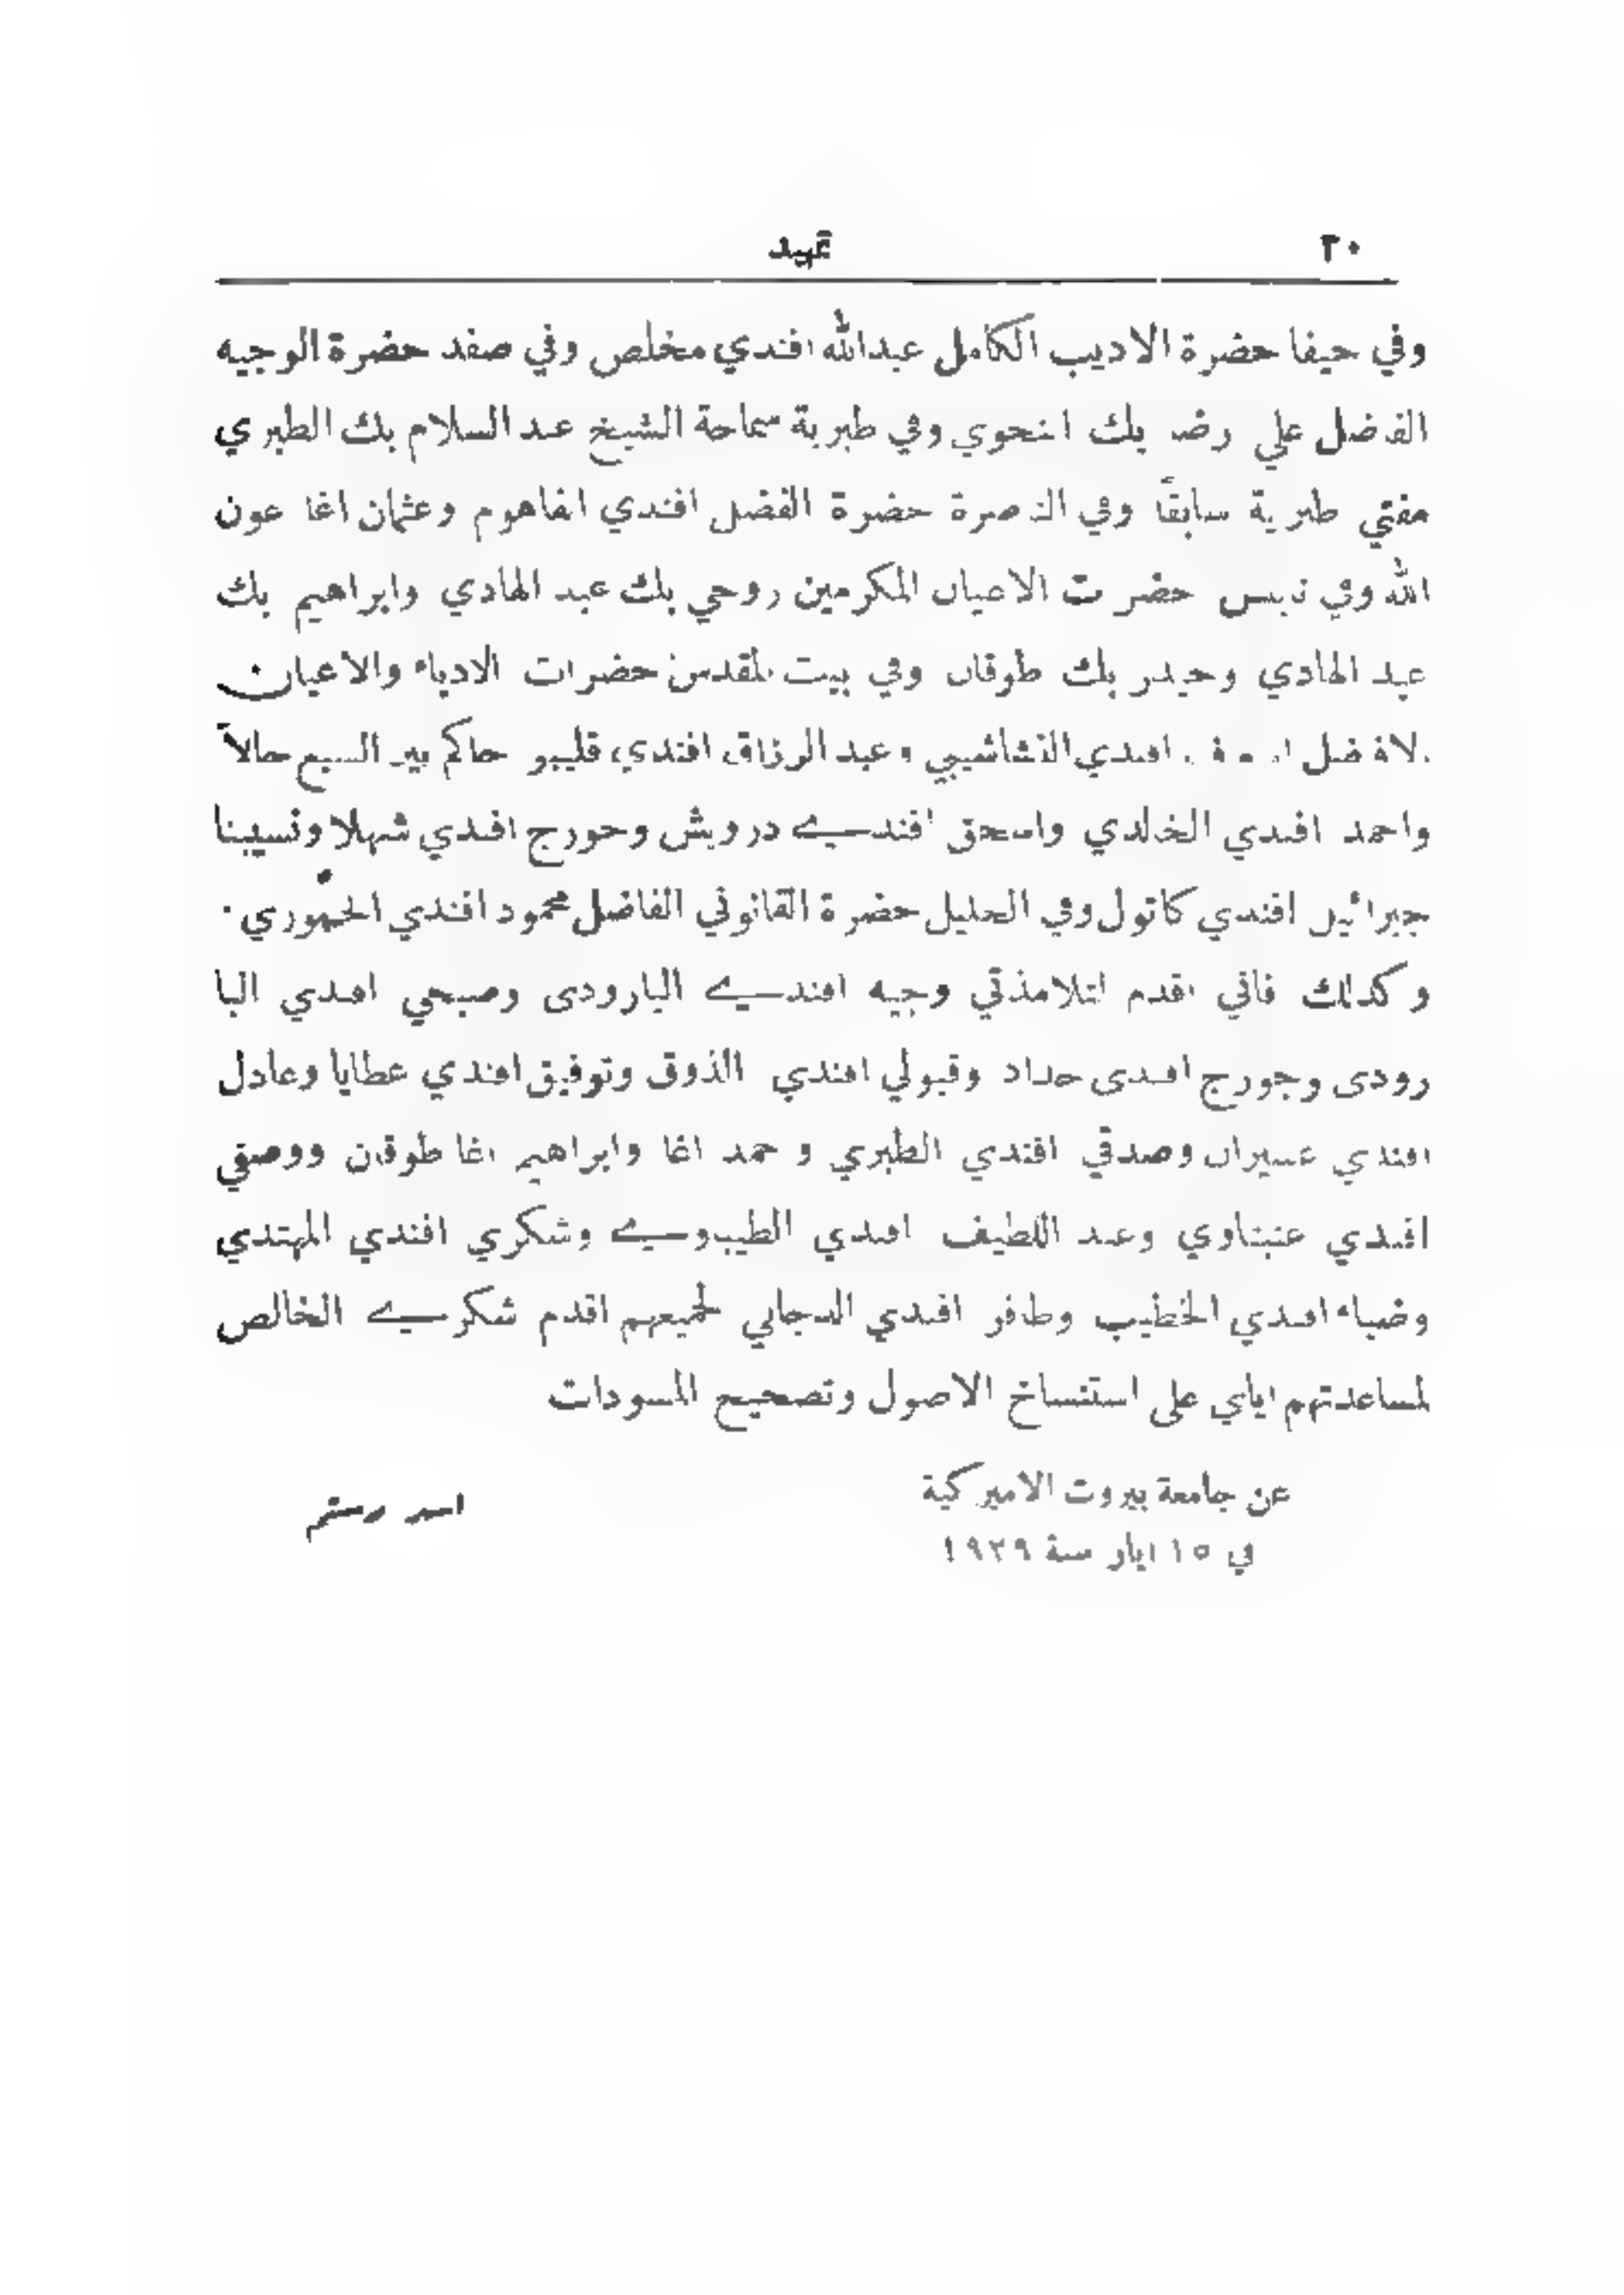 ٢٠ تمهيد
وفي حيفا حضرة الاديب الكامل عبدالله افندي مخلص وفي صفد حضرة الوجيه
الفاضل علي رضا بك النحوي وفي طبرية سماحة الشيخ عبد السلام بك الطبري
مفتي طبرية سابقاً وفي الناصرة حضرة الفضل افندي الفاهوم وعثمان اغا عون
الله وفي نابلس حضرات الاعيان المكرمين روحي بك عبد الهادي وابراهيم بك
عبد الهادي وحيدر بك طوقان وفي بيت المقدس حضرات الادباء والاعيان
الافاضل افندي النشاشيبي وعبد الرزاق افندي قليبو حاكم بير السبع حالاً
واحمد افندي الخالدي واسحق افندي درويش وجورج افندي شهلا ونسيبنا
جبرائيل افندي كاتول وفي الخليل حضرة القانوني الفاضل محمود افندي الحموري ·
وكذلك فاني اقدم لتلامذتي وجيه افندي البارودى وصبحي افندي البا
رودى وجورج افندى حداد وقبولي افندي الذوق وتوفيق افندي عطايا وعادل
افندي عسيران وصدقي افندي الطبري واحمد اغا وابراهيم اغا طوقان ووصفي
افندي عنبتاوي وعبد اللطيف افندي الطيباوي وشكري افندي المهتدي
وضياء افندي الخطيب وظافر افندي الدجاني لجميعهم اقدم شكري الخالص
لمساعدتهم اياي على استنساخ الاصول وتصحيح المسودات
عن جامعة بيروت الاميركية
اسد رستم
في ١٥ ايار سنة ١٩٢٩